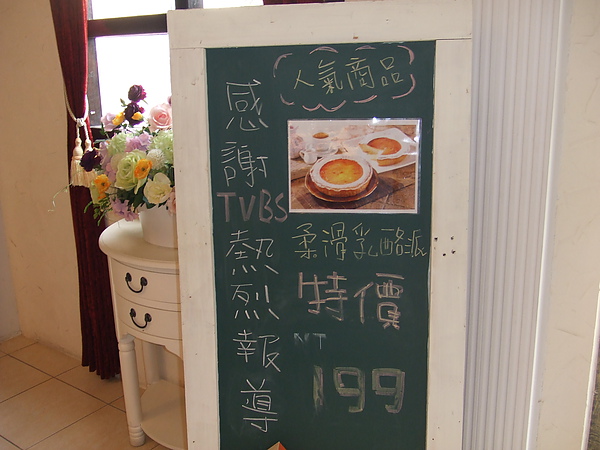 感謝TVBS熱烈報導
人氣商品
柔滑乳酪派
特價
NT
199